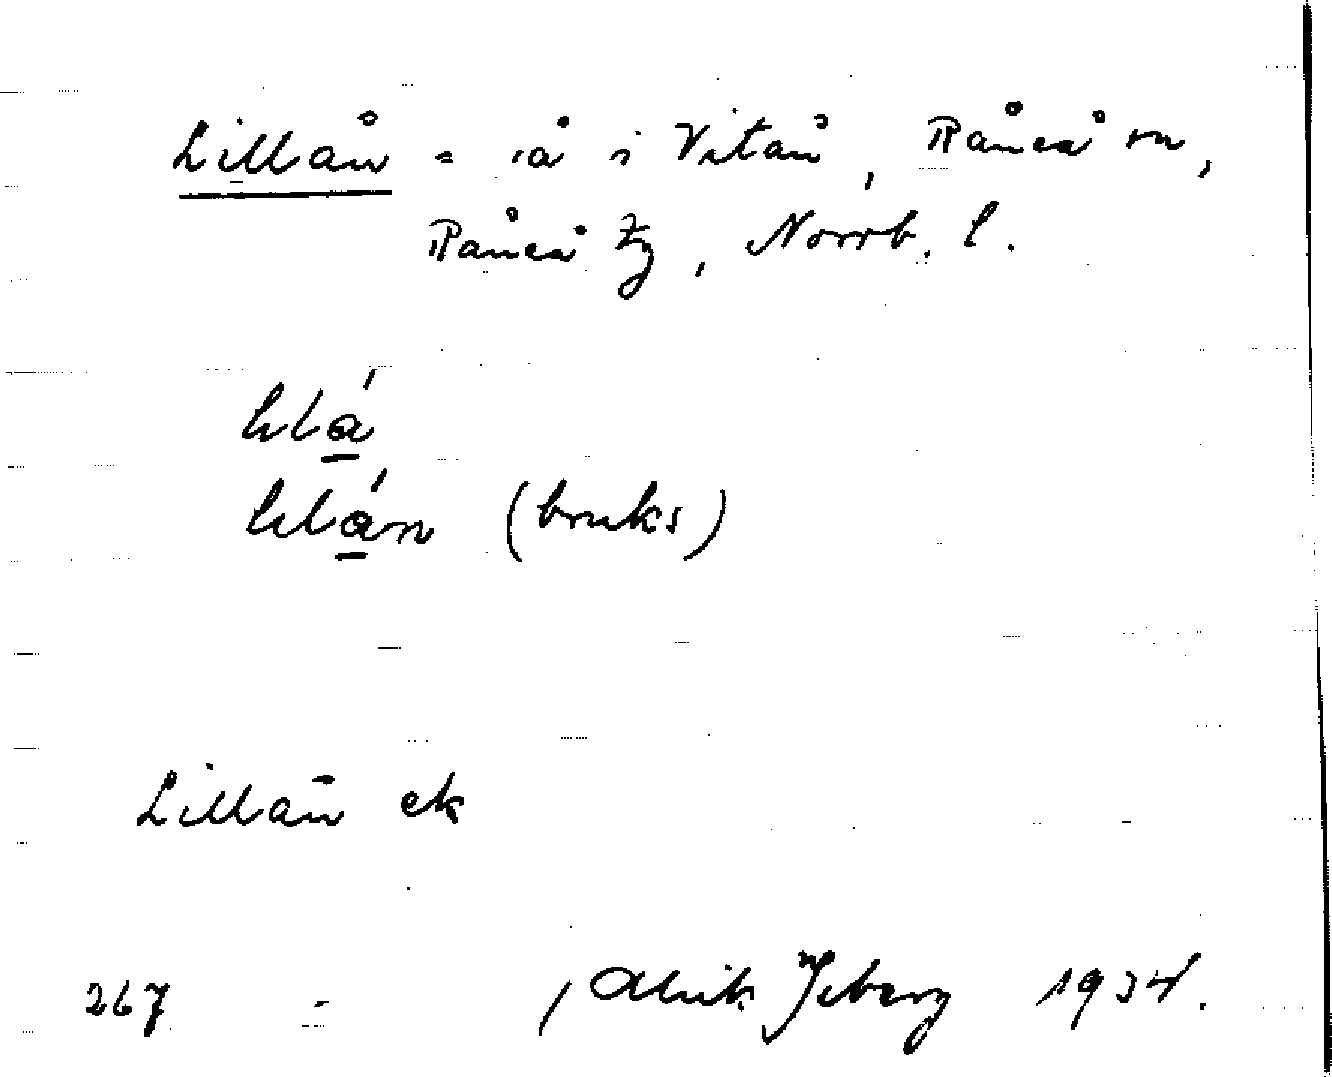 Lillån = å i Vitån, Råneå sn,
Råneå tg, Norrb. l.
lılǻ
lılǻn (bruks)
Lillån ek
267 - / Alrik Yeberg 1934.